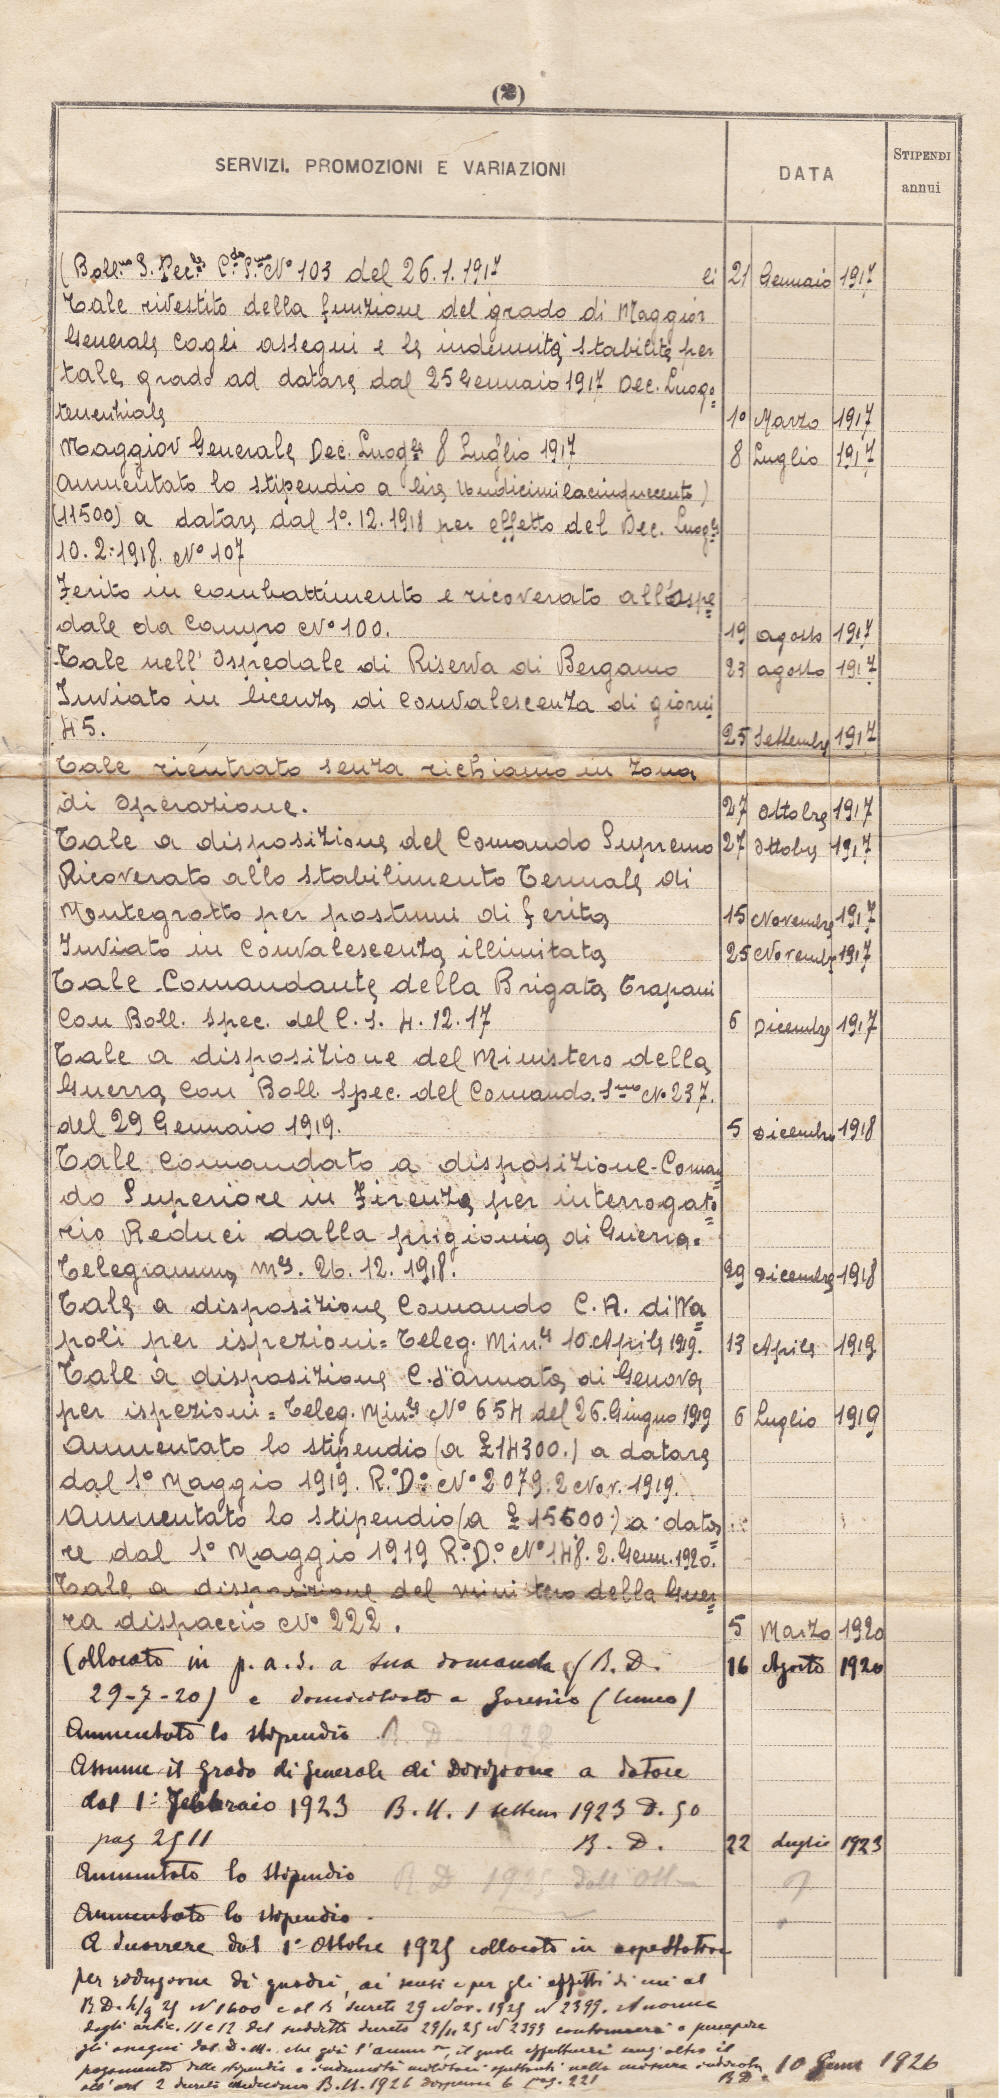 (2)
SERVIZI. PROMOZIONI E VARIAZIONI DATA STIPENDI annui
(Boll.no S. Pec.le C.do S.mo No 103 del 26.1.1917 li 21 Gennaio 1917
Tale rivestito della funzione del grado di Maggior
Generale cogli assegni e le indennità stabilite per
tale grado ad datare dal 25 Gennaio 1917 Dec. Luogo=
tenenziale 1o Marzo 1917
Maggior Generale Dec. Luog.le 8 Luglio 1917 8 Luglio 1917
Aumentato lo stipendio a lire Undicimilacinquecento)
(11500) a datare dal 1o.12.1918 per effetto del Dec. Luog.le
10.2.1918. No 107
Ferito in combattimento e ricoverato all'Ospe=
dale da Campo No 100. 19 agosto 1917
Tale nell' Ospedale di Riserva di Bergamo 23 agosto 1917
Inviato in licenza di convalescenza di giorni
45. 25 Settembre 1917
Tale rientrato senza richiamo in zona
di operazione. 27 Ottobre 1917
Tale a disposizione del Comando Supremo 27 Ottobre 1917
Ricoverato allo stabilimento Termale di
Montegrotto per postumi di ferita 15 Novembre 1917
Inviato in Convalescenza illimitata 25 Novembre 1917
Tale Comandante della Brigata Trapani
Con Boll. Spec. del C.S. 4.12.17 6 Dicembre 1917
Tale a disposizione del Ministero della
Guerra con Boll Spec. del Comando. S.mo No 237.
del 29 Gennaio 1919. 5 Dicembre 1918
Tale comandato a disposizione-Coman
do Superiore in Firenze per interrogato=
rio Reduci dalla prigionia di Guerra.
Telegramma M.le. 26.12.1918. 29 Dicembre 1918
Tale a disposizione Comando C.A. di Na=
poli per ispezioni= Teleg. Min.le 10 Aprile 1919. 13 Aprile 1919
Tale a disposizione C. d'armata di Genova
per ispezioni= Teleg. Min.le No 654 del 26 Giugno 1919 6 Luglio 1919
Aumentato lo stipendio (a £14300.) a datare
dal 1o Maggio 1919. R.o D.o No 2079. 2 Nov. 1919.
Aumentato lo stipendio (a £ 15600.) a data=
re dal 1o Maggio 1919 R.o D.o No 148. 2. Genn. 1920.
Tale a disposizione del ministero della Guer=
ra dispaccio No 222. 5 Marzo 1920
Collocato in p.a.s. a sua domanda (R.D. 16 Agosto 1920
29-7-20) e domiciliato a Garessio (Cuneo)
Aumentato lo stipendio R.D. 1922
Assume il grado di Generale di Divisione a datare
dal 1o Febbraio 1923 B.U. 1 settem 1923 D. 50
pag 2511 R.D. 22 luglio 1923
Aumentato lo stipendio R D 1925
Aumentato lo stipendio.
A decorrere dal 1o Ottobre 1925 collocato in aspettativa
per riduzione di quadri, ai sensi e per gli effetti di cui al
R.D. 25 N 1600 e al R decreto 29 Nov. 1925 N 2399. A norma
degli artic. 11 e 12 del suddetto decreto 29/11 25 N 2399 continuerà a percepire
gli assegni dal D.M. che già l'ammi
pagamento dello stipendio e indennità militari spettanti nella misura indicata
all'art 2 decreto B.U. 1926 dispensa 6 pag. 221 R.D. 10 Genn 1926